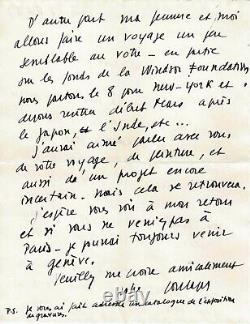 D'autre part ma femme et moi
allons faire un voyage un peu
semblable au votre - en partie
sur les fonds de la Windsor Foundation
nous partons le 8 pour New-York et
devons rentrer début Mars après
le Japon, et l'Inde, etc...
J'aurai aimé parler avec vous
de votre voyage, de peinture, et
aussi de un projet encore
incertain. Mais cela se retrouvera.
J'espère vous voir à mon retour
et si vous ne venez pas à
Paris - je pourrai toujours venir
à genève.
Veuillez me croire amicalement
P.S. Je vous ai fait adresser un catalogue de l'exposition
de gravures.